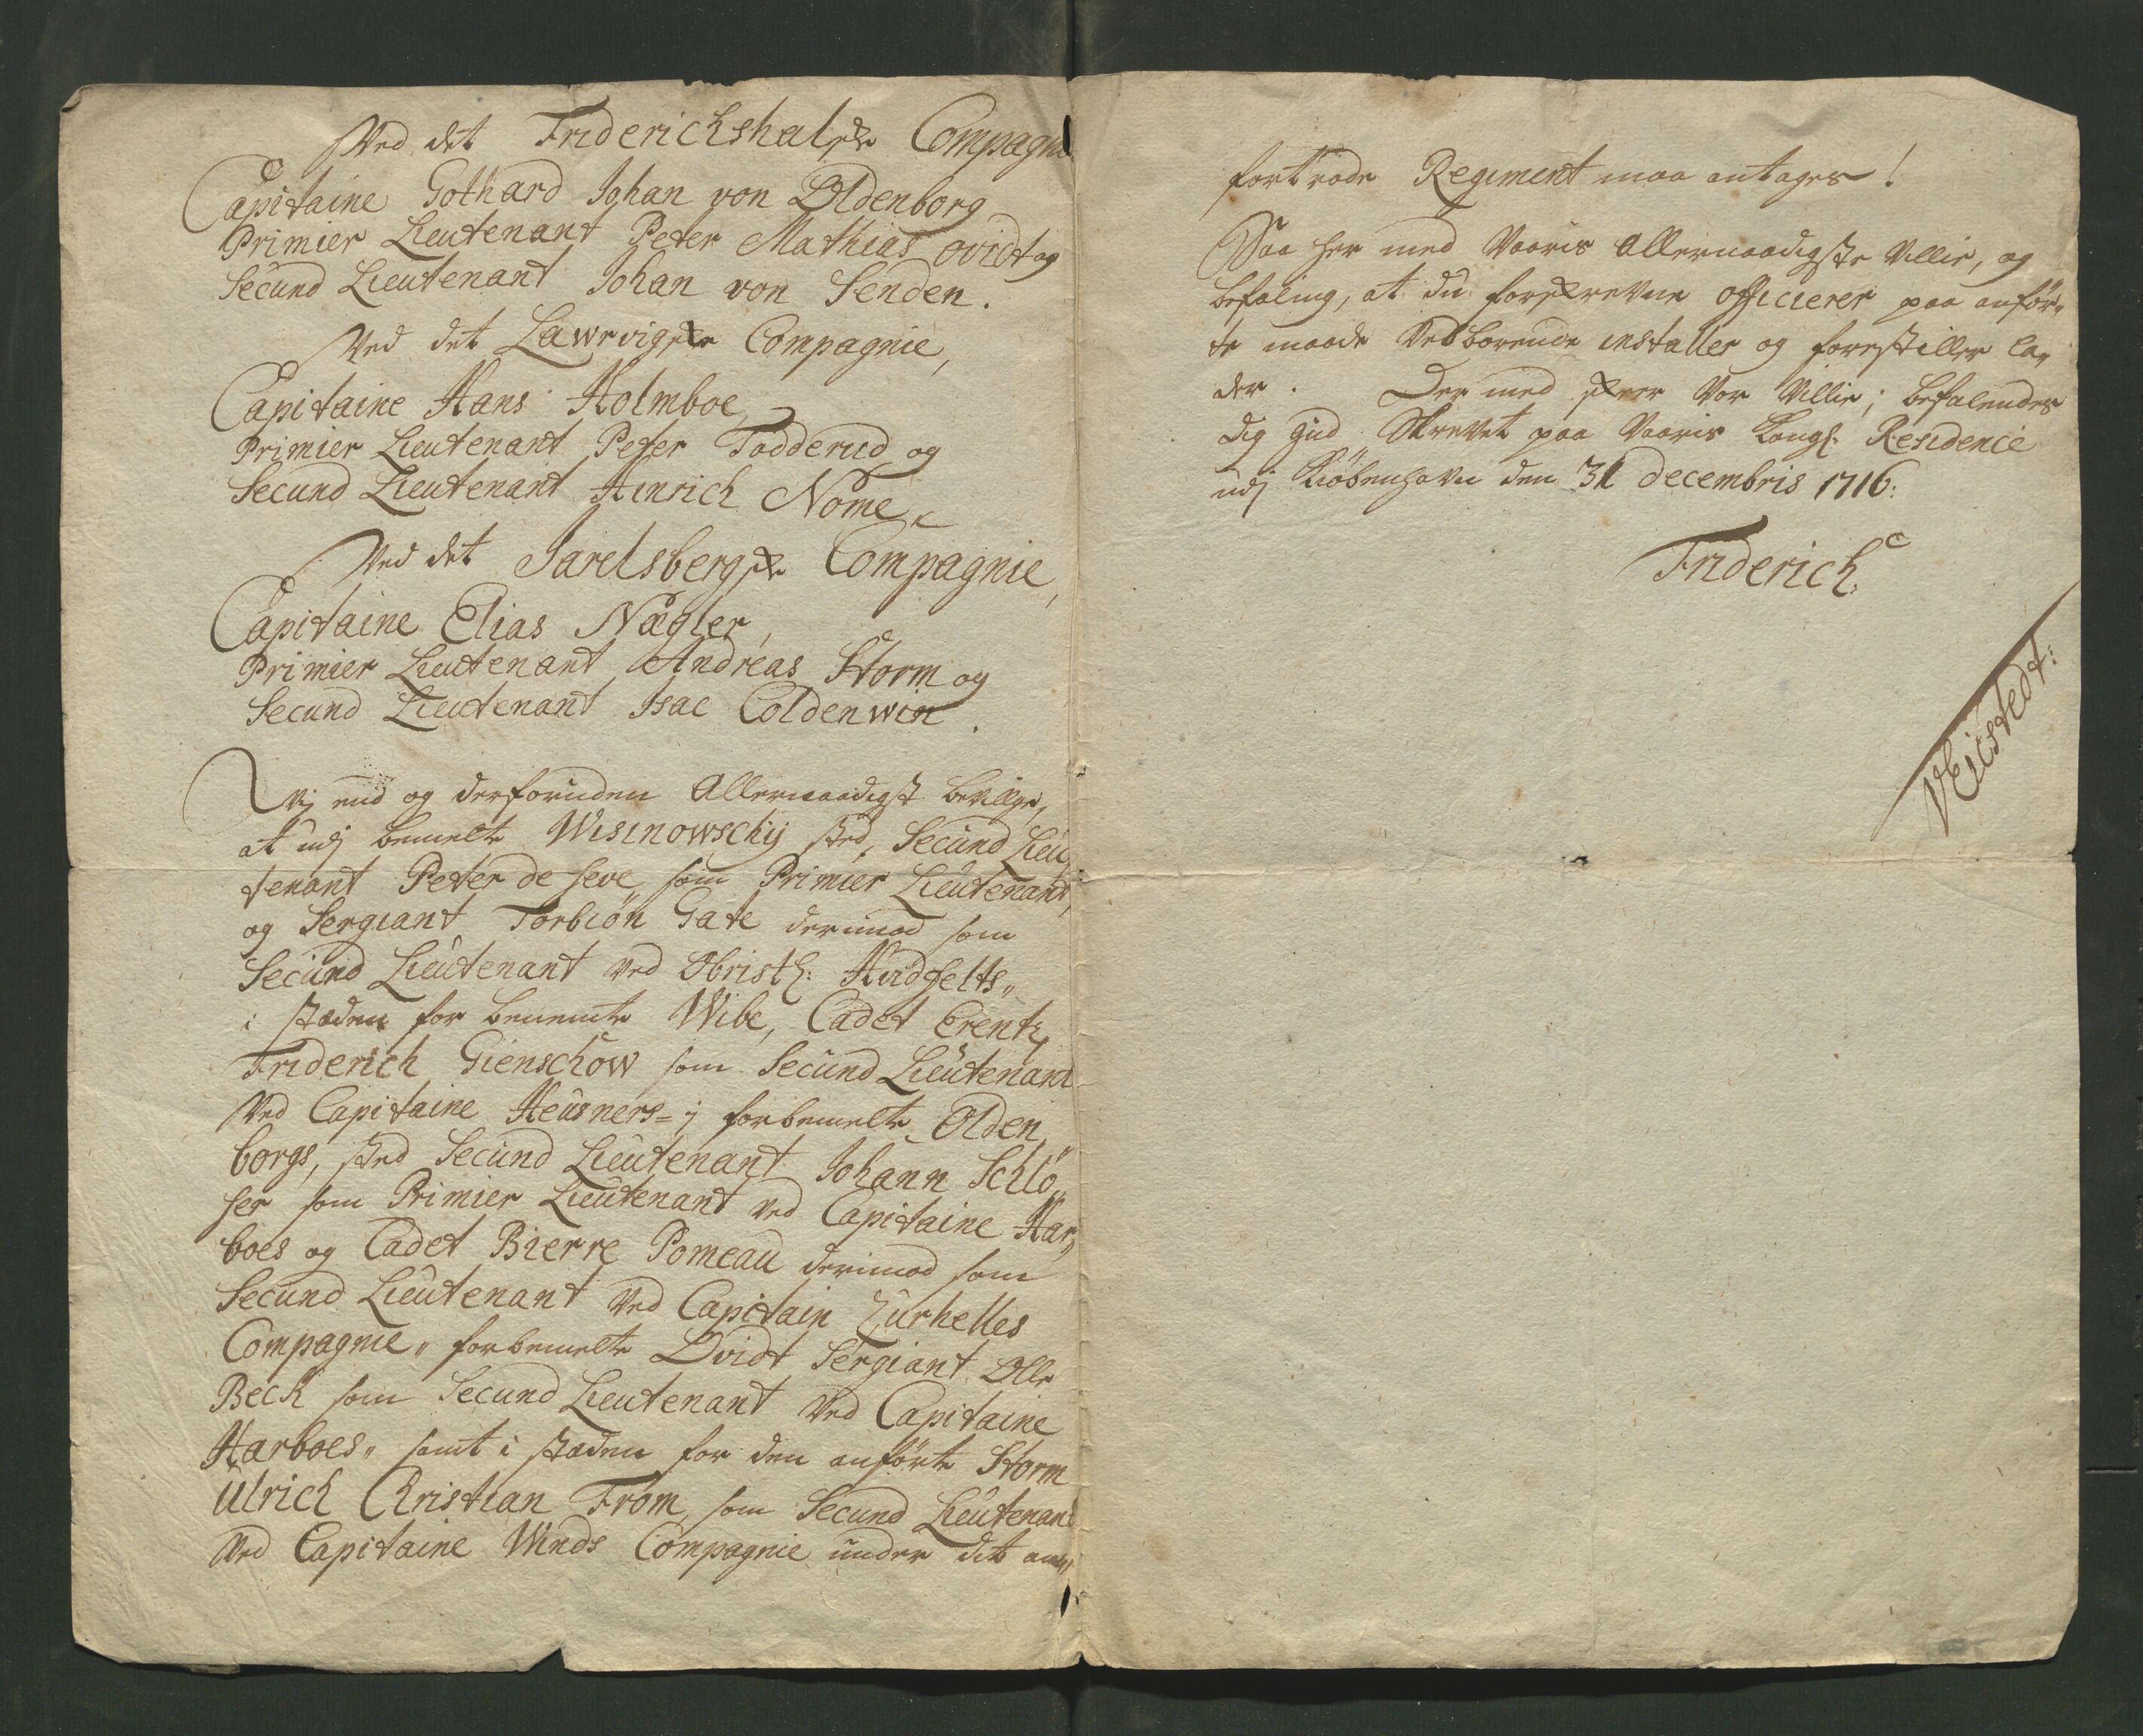 Ved det Friderichshalske Compagnie
Capitaine Gothard Johan von Oldenborg
Primier Lieutenant Peter Mathias Ovidt og
Secund Lieutenant Johan von Senden.
Ved det Lawrvigske Compagnie,
Capitaine Hans Holmboe,
Primier Lieutenant Peter Todderud og
Secund Lieutenant Hinrich Nome,
Ved det Jarelsbergske Compagnie,
Capitaine Elias Nægler,
Primier Lieutenant Andreas Storm og
Secund Lieutenant Isac Coldenwin.
Vi end og desforuden Allernaadigst bevilge,
at udj bemelte Wisinowschij sted, Secund Lieu„
tenant Peter de Seve som Primier Lieutenant,
og Sergiant Torbiön Gate derimod som
Secund Lieutenant ved Obristl: Hudfelts„
i stæden for benemte Wibe, Cadet Erentz
Friderich Gienschow som Secund Lieutenant
Ved Capitaine Heusners- j forbemelte Olden„
borgs, sted Secund Lieutenant Johann Schlö„
ser som Primier Lieutenant ved Capitaine Har„
boes og Cadet Bierre Pomeau derimod som
Secund Lieutenant Ved Capitain Zurhelles
Compagnie„ forbemelte Ovidt Sergiant Olle
Beck som Secund Lieutenant Ved Capitaine
Harboes„ samt i stæden for den anförte Storm
Ulrich Christian From som Secund Lieutenant
Ved Capitaine Winds Compagnie under dit an„
fortroede Regiment maa antages!
Saa er her med Vaaris Allernaadigste Villie, og
befaling, at du forskrevne Officierer paa anför„
te maade Vedbörende installer og forestiller la„
der. Der med skeer Vor Villie; Befalendes
dig Gud Skrevet paa Vaaris Kongl: Residence
udj Kiöbenhavn den 31 decembris 1716.
Friderich
VEilstedt: